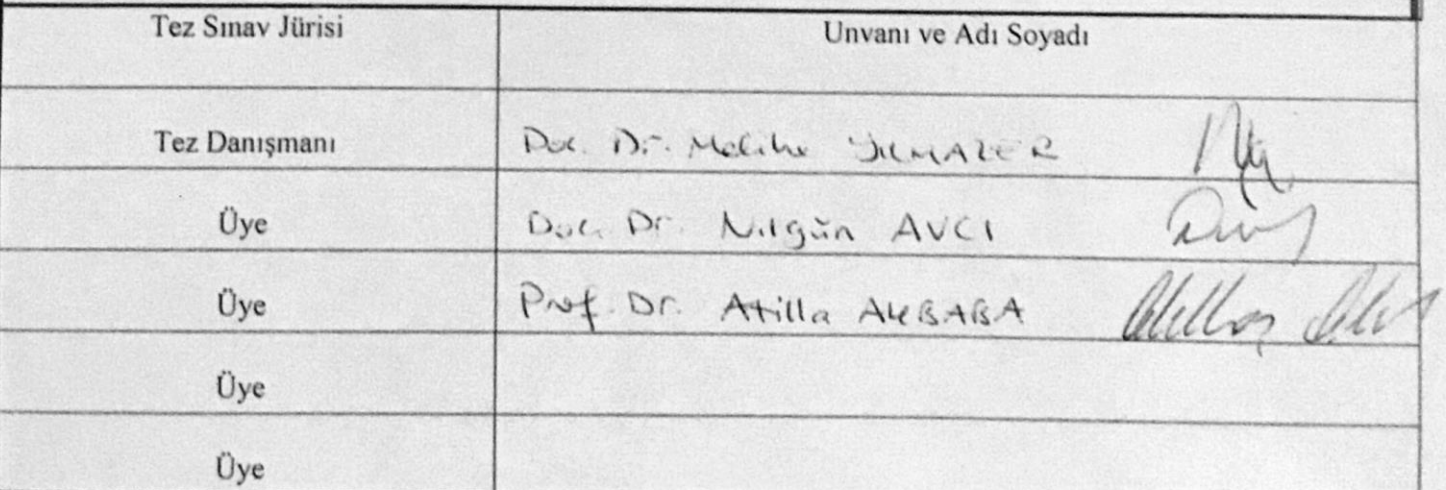 Tez Sınav Jürisi Unvanı ve Adı Soyadı
Tez Danışmanı Doç. Dr. Melike YILMAZER
Üye Doç. Dr. Nilgün AVCI
Üye Prof. Dr. Atilla AKBABA
Üye
Üye